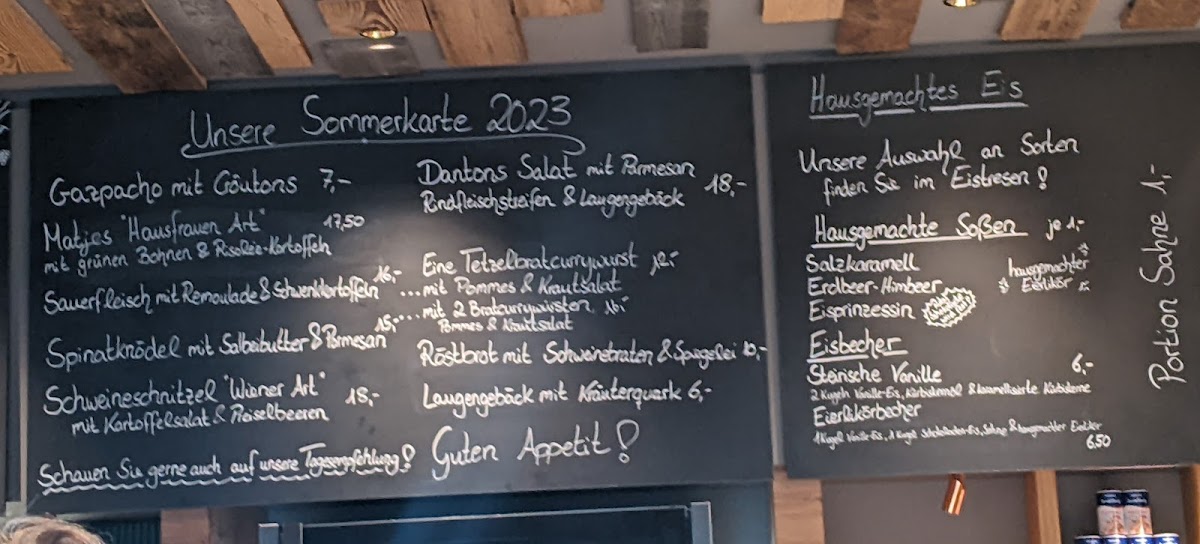 Unsere Sommerkarte 2023
Gazpacho mit Cöutons 7,-
Matjes "Hausfrauen Art" 17,50
mit grünen Bohnen & Risolée-Kartoffeln
Sauerfleisch mit Remoulade & Schwenkkartoffeln 16,-
Spinatknödel mit Salbeibutter & Parmesan 15,-
Schweineschnitzel "Wiener Art" 18,-
mit Kartoffelsalat & Preiselbeeren
Schauen Sie gerne auch auf unsere Tagesempfehlung!
Dantons Salat mit Parmesan
Rindfleischstreifen & Laugengebäck 18,-
Eine Tetzelbratcurrywurst 12,-
...mit Pommes & Krautsalat
...mit 2 Bratcurrywürsten 16,-
Pommes & Krautsalat
Röstbrot mit Schweinebraten & Spiegelei 10,-
Laugengebäck mit Kräuterquark 6,-
Guten Appetit!
Hausgemachtes Eis
Unsere Auswahl an Sorten
finden Sie im Eistresen!
Hausgemachte Soßen je 1,-
Salzkaramell
Erdbeer-Himbeer
Eisprinzessin
hausgemachter
Eierlikör
Eisbecher
Steirische Vanille 6,-
2 Kugeln Vanille-Eis, Kürbiskernöl & karamellisierte Kürbiskerne
Eierlikörbecher
1 Kugel Vanille-Eis, 1 Kugel Schokoladen-Eis, Sahne & hausgemachter Eierlikör
6,50
Portion Sahne 1,-